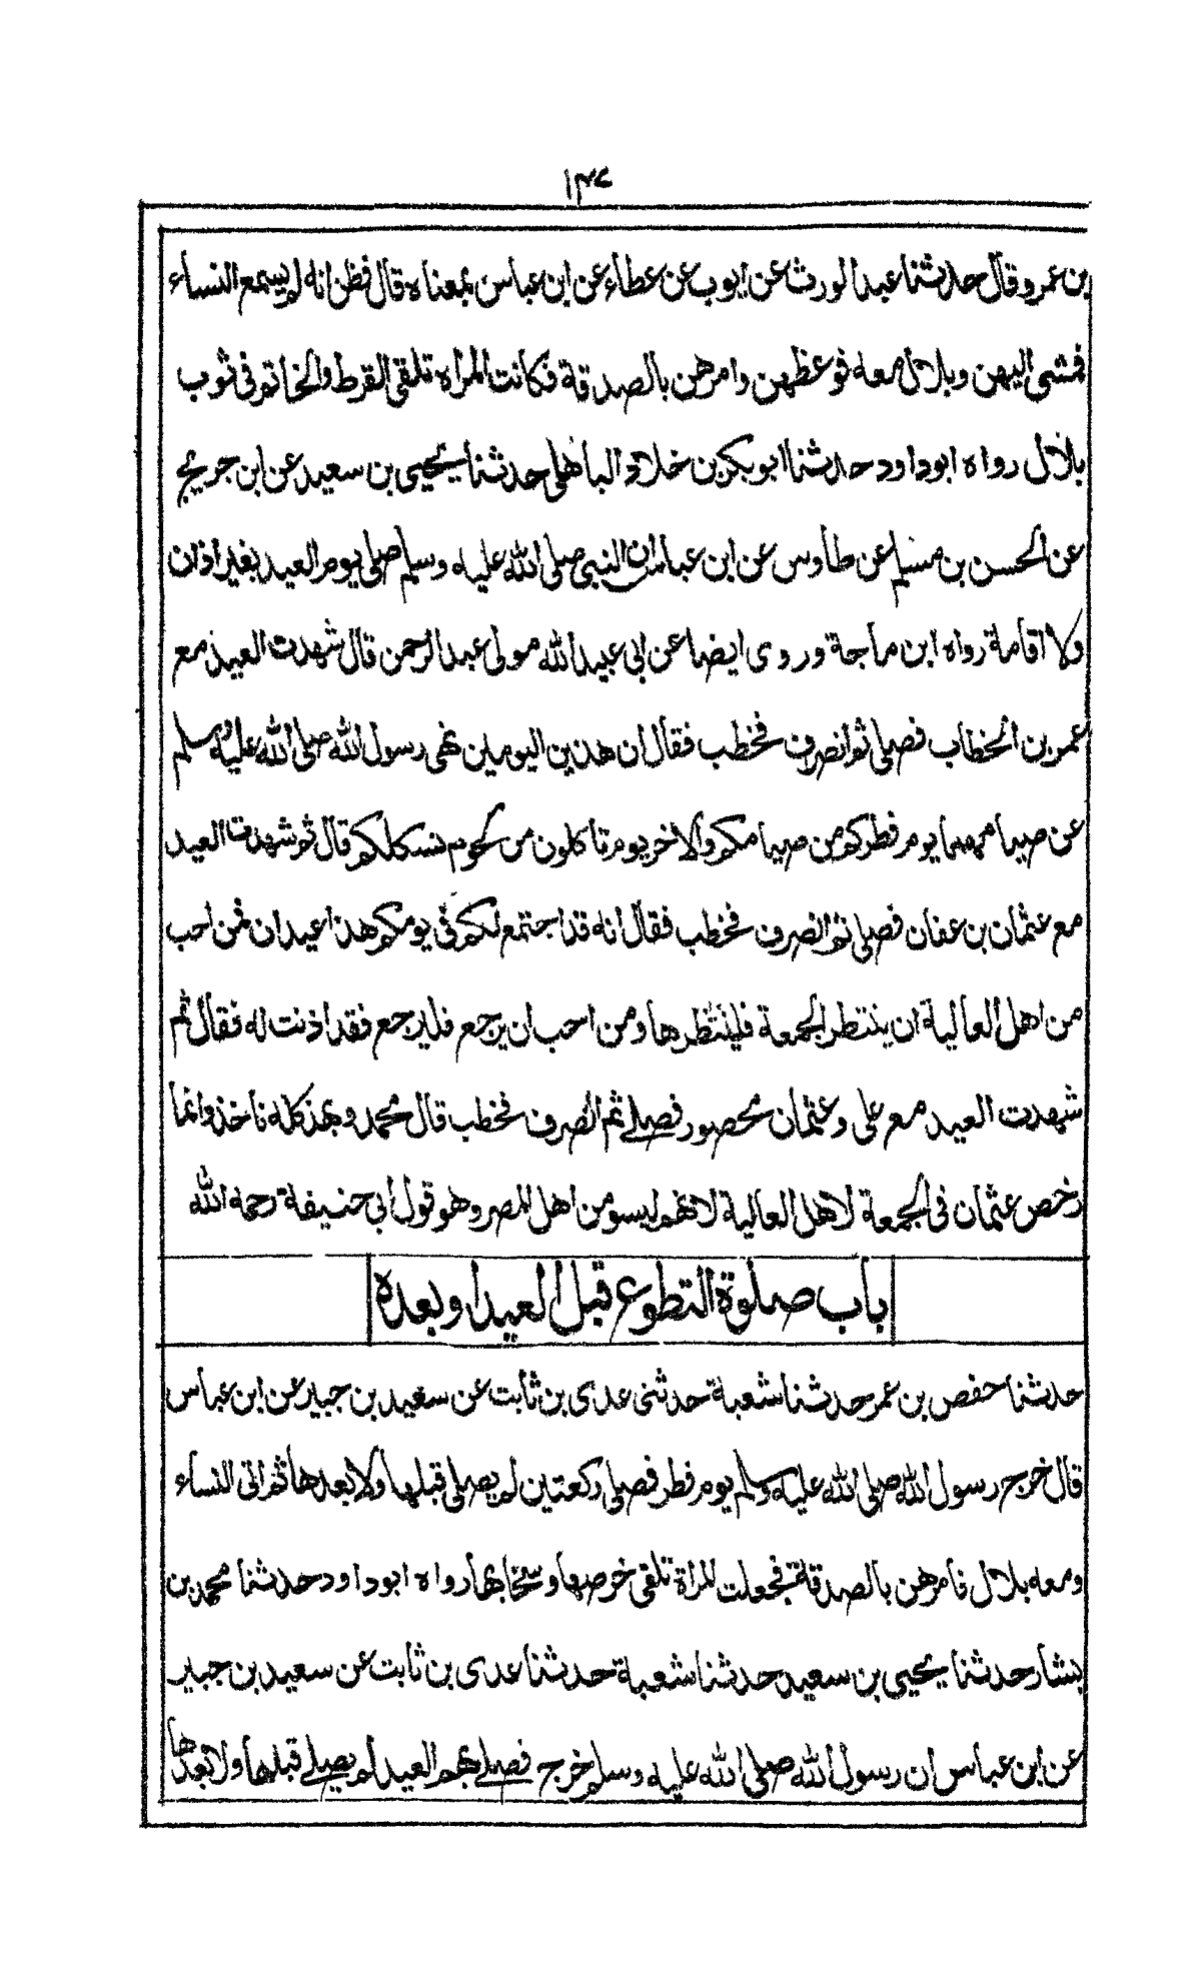 ۱۳۷
بن عمرو قال حدثنا عبد الورث عن ايوب عن عطاء عن ابن عباس بمعناه قال فظن انه لم يسمع النساء
فمشى اليهن وبلال معه فوعظهن وامرهن بالصدقة فكانت المراه تلقى القرط والخاتم فى ثوب
بلال رواه ابوداود حدثنا ابوبكر بن خلاد الباهلى حدثنا يحيى بن سعيد عن ابن جريج
عن الحسن بن مسلم عن طاوس عن ابن عباس ان النبى صلى الله عليه وسلم صلى يوم العيد بغير اذان
ولا اقامة رواه ابن ماجة وروى ايضا عن ابى عبيد الله مولى عبد الرحمن قال شهدت العيد مع
عمر بن الخطاب فصلى ثم انصرف فخطب فقال ان هذين اليومين نهى رسول الله صلى الله عليه وسلم
عن صيامهما يوم فطركم من صيامكم والاخر يوم تاكلون من لحوم نسككم قال ثم شهدت العيد
مع عثمان بن عفان فصلى ثم انصرف فخطب فقال انه قد اجتمع لكم فى يومكم هذا عيدان فمن احب
من اهل العالية ان ينتظر الجمعة فلينتظرها ومن احب ان يرجع فليرجع فقد اذنت له فقال ثم
شهدت العيد مع على وعثمان محصور فصلى ثم انصرف فخطب قال محمد وبهذ كله ناخذ وانما
رخص عثمان فى الجمعة لاهل العالية لانهم ليسو من اهل المصر وهو قول ابى حنيفة رحمه الله
باب صلوة التطوع قبل العيد او بعده
حدثنا حفص بن عمر حدثنا شعبة حدثنى عدى بن ثابت عن سعيد بن جبير عن ابن عباس
قال خرج رسول الله صلى الله عليه وسلم يوم فطر فصلى ركعتين لم يصلى قبلها ولا بعدها ثم اتى النساء
ومعه بلال فامرهن بالصدقة فجعلت المراة تلقى خرصها وسخابها رواه ابوداود حدثنا محمد بن
بشار حدثنا يحيى بن سعيد حدثنا شعبة حدثنا عدى بن ثابت عن سعيد بن جبير
عن ابن عباس ان رسول الله صلى الله عليه وسلم خرج فصلى بهم العيد لم يصلى قبلها ولا بعدها